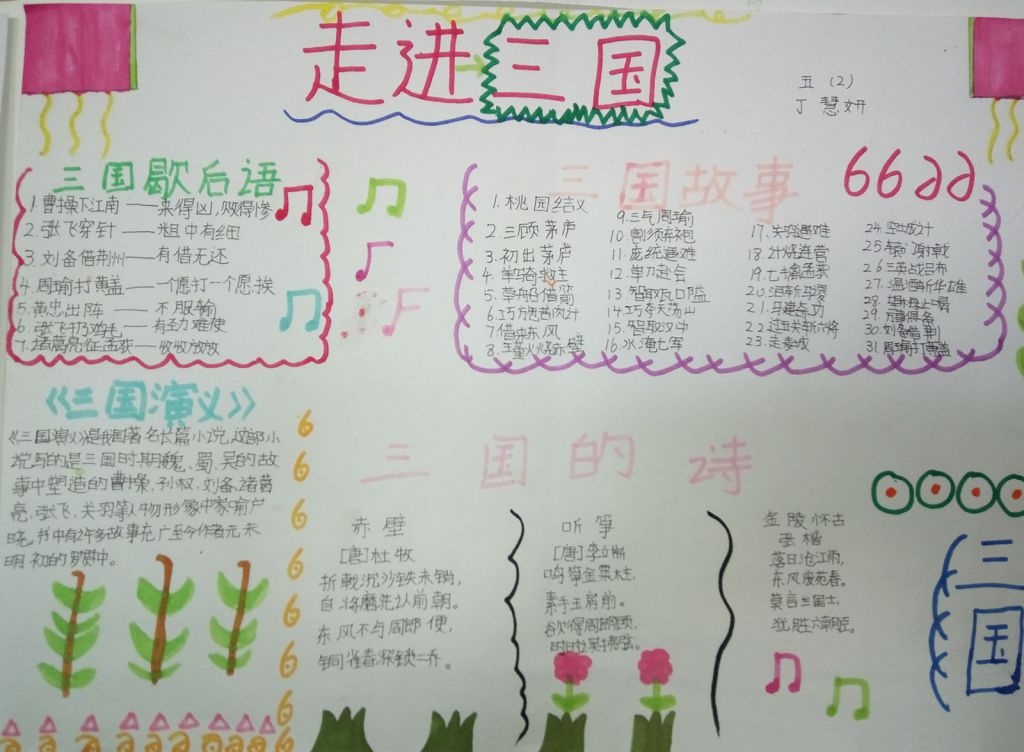 走进三国
五（2）
丁慧妍
三国歇后语
1.曹操下江南——来得凶,败得惨
2.张飞穿针——粗中有细
3.刘备借荆州——有借无还
4.周瑜打黄盖——一个愿打一个愿挨
5.黄忠出阵——不服输
6.张飞打鸡毛——有劲难使
7.诸葛亮征孟获——收收放放
三国故事
1.桃园结义
2.三顾茅庐
3.初出茅庐
4.单骑救主
5.草船借箭
6.巧施苦肉计
7借东风
8.火烧赤壁
9.三气周瑜
10.割须弃袍
11.庞统遇难
12.单刀赴会
13.智取瓦口隘
14.巧夺天荡山
15.智取汉中
16.水淹七军
17.关羽遇难
18.计烧连营
19.七擒孟获
20.泪斩马谡
22.过五关斩六将
23.走麦城
24.空城计
25辕门射戟
26三英战吕布
27.温酒斩华雄
28.望梅止渴
30.刘备借荆
31.周瑜打黄盖
《三国演义》
《三国演义》是我国著名长篇小说,这部小
说写的是三国时期魏、蜀、吴的故
事中塑造的曹操、孙权、刘备、诸葛
亮、张飞、关羽等人物形象中家喻户
晓。书中有2许多故事充广至今作者元末
明初的罗贯中。
三国的诗
赤壁
[唐]杜牧
折戟沉沙铁未销,
自将磨洗认前朝。
东风不与周郎便,
铜雀春深锁二乔。
听筝
[唐]李端
鸣筝金粟柱,
素手玉房前。
欲得周郎顾,
时时误拂弦。
金陵怀古
落日沧江雨,
东风废苑春。
莫言三国士,
犹胜六朝
三国